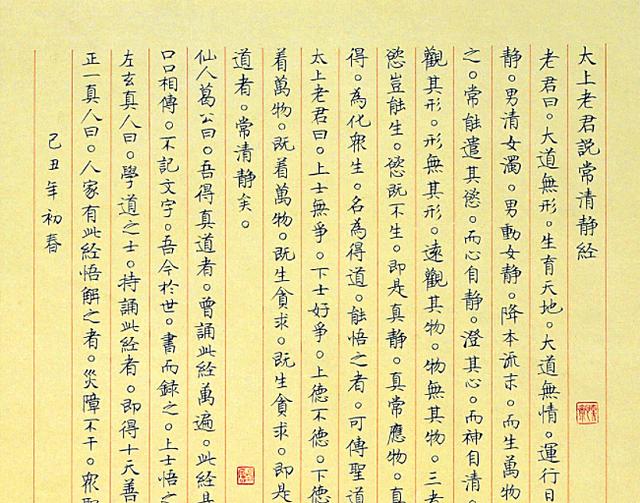 太上老君説常清静経
老君曰。大道無形。生育天地。大道無情。運行日
静。男清女濁。男動女静。降本派末。而生萬物
之。常能遣其慾。而心自静。澄其心。而神自清。
觀其形。形無其形。遠觀其物。物無其物。三者
慾豈能生。慾既不生。即是真静。真常應物。真
得。為化衆生。名為得道。能悟之者。可傳聖道
太上老君曰。上士無爭。下士好爭。上德不德。下德
着萬物。既着萬物。既生貪求。既生貪求。即是
道者。常清静矣。
仙人葛公曰。吾得真道者。曾誦此経萬遍。此経是
口口相傳。不記文字。吾今於世。書而録之。上士悟之
左玄真人曰。學道之士。持誦此経者。即得十天善
正一真人曰。人家有此経悟解之者。災障不干。衆聖
己丑年初春